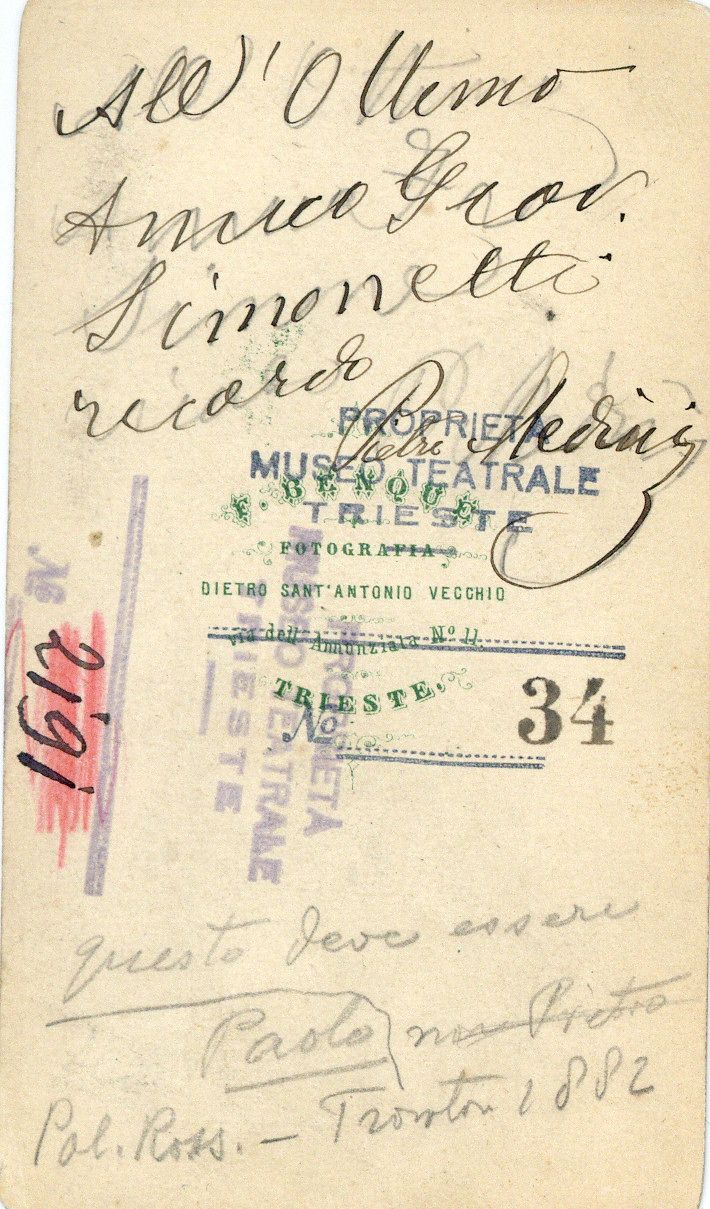 All' Ottimo
Amico Giov.
Simonetti
ricordo
Pietro Medini
PROPRIETÀ
MUSEO TEATRALE
TRIESTE
F. BENQUE
FOTOGRAFIA
DIETRO SANT'ANTONIO VECCHIO
Via dell' Annunziata No 11.
TRIESTE.
No 34
PROPRIETÀ
MUSEO TEATRALE
TRIESTE
No 2191
questo deve essere
Paolo non Pietro
Pol. Ross. - 1882